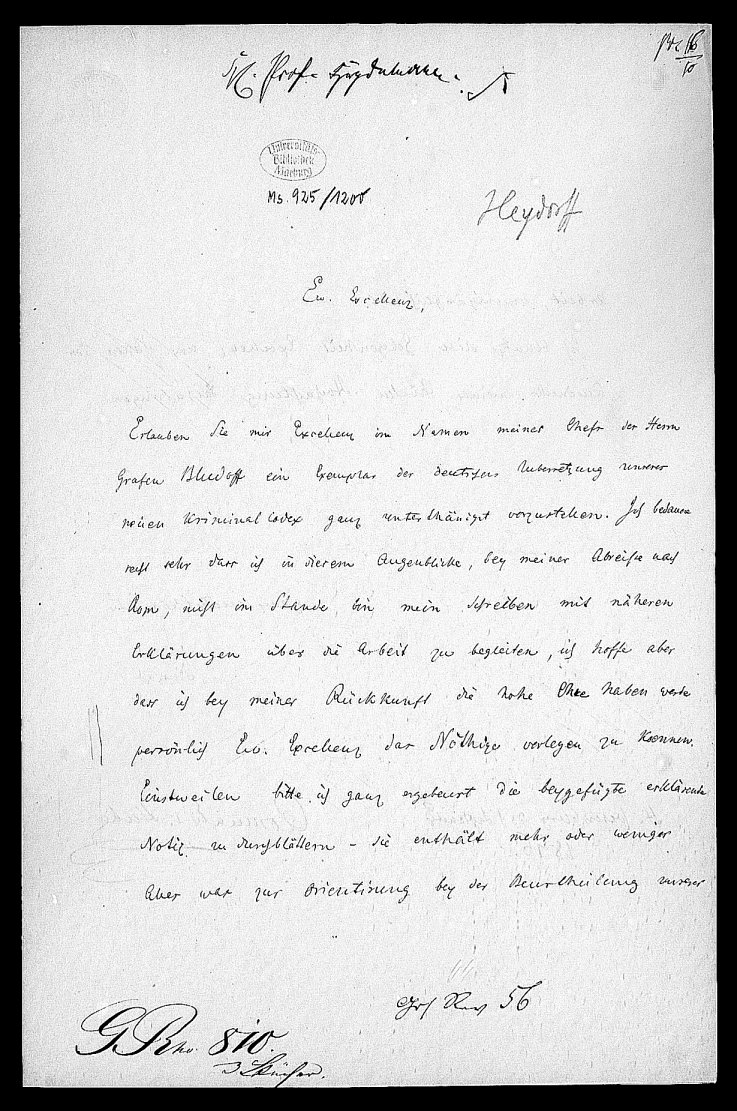 Prof.
Universitäts-
Bibliothek
Marburg
Ms. 925/1200
Heydorff
Ew. Excellenz,
Erlauben Sie mir Excellenz im Namen meines Chefs des Herrn
Grafen Bludoff ein Exemplar der deutschen Uebersetzung unseres
neuen Kriminal Codex ganz unterthänigst vorzustellen. Ich bedaure
recht sehr dass ich in diesem Augenblicke, bey meiner Abreise nach
Rom, nicht im Stande bin mein Schreiben mit näheren
Erklärungen über die Arbeit zu begleiten, ich hoffe aber
dass ich bey meiner Rückkunft die hohe Ehre haben werde
persönlich Ew. Excellenz das Nöthige vorlegen zu koennen.
Einstweilen bitte ich ganz ergebenst die beygefügte erklärende
Notiz zu durchblättern - sie enthält mehr oder weniger
Alles was zur Orientirung bey der Beurtheilung unserer
56
G. 810.
3 Bücher.